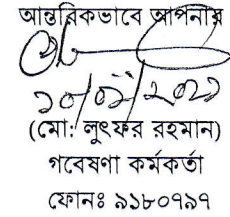 আন্তরিকভাবে আপনার
(মো: লুৎফর রহমান)
গবেষণা কর্মকর্তা
ফোনঃ ৯১৮০৭৯৭